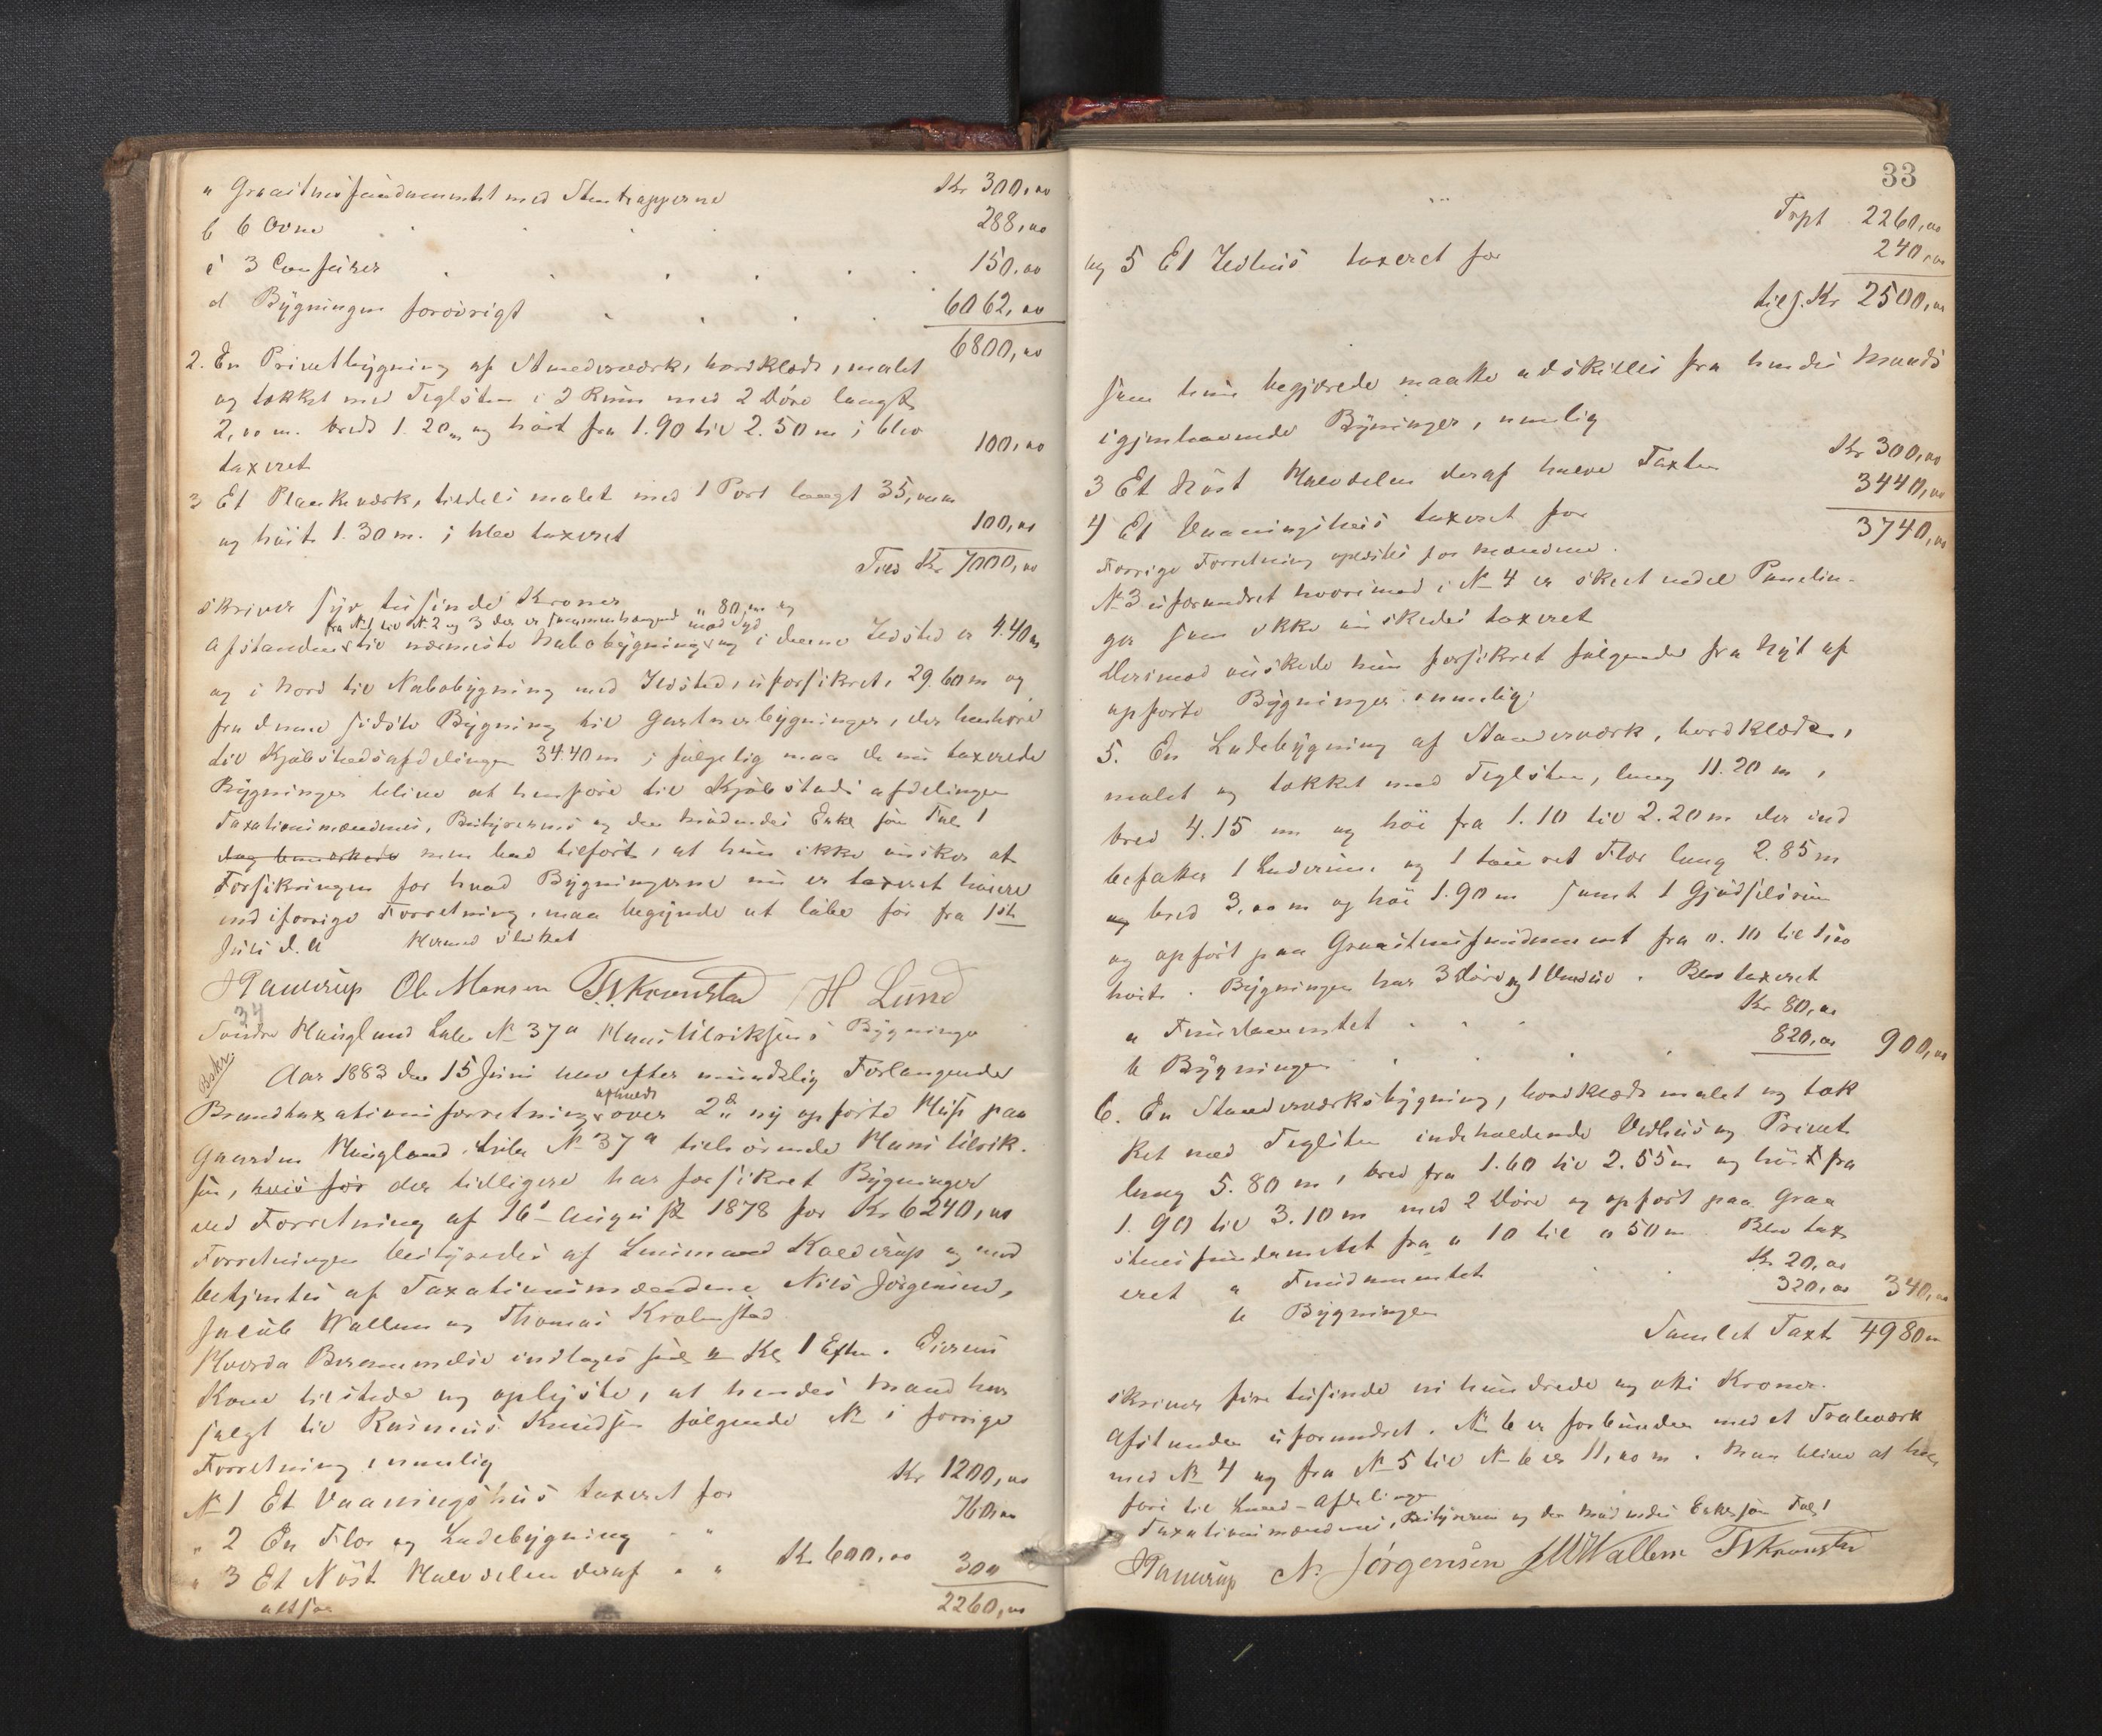 a Graastensfundamentet med Stentrapperne Kr 300,00
b 6 Ovne 288,00
c 3 Comfurer 150,00
d Bygningen forövrigt 6062,00
6800,00
2. En Privetbygning af Standerværk, bordklædt, malet
og tækket med Teglsten i 2 Rum med 2 Döre langt
2,00 m. bredt 1.20 m og höit fra 1.90 til 2.50 m; blev
taxeret 100,00
3 Et Plankeværk, tildels malet med 1 Port langt 35,00 m
og höit 1.30 m. ; blev taxeret 100,00
Tils Kr 7000,00
skriver syv tusinde Kroner
fra No 1 til No 2 og 3 der er sammenhængende " 80, m og
Afstanden til nærmeste Nabobygning med Ildsted er 4.40 m
og i Nord til Nabobygning med Ildsted, uforsikret, 29.60 m og
fra denne sidste Bygning til Gartnerbygninger, der henhörer
til Kjöbstadsafdelingen 34.40 m ; fölgelig maa de nu taxerede
Bygninger blive at henföre til Kjöbstads afdelingen
Taxationsmændenes, Bestyrerens og den mödendes Enke fru Fal
dog bemærkede som bad tilfört, at hun ikke önsker at
Forsikringen for hvad Bygningerne nu er taxeret höiere
end i forrige Forretning, maa begynde at löbe för fra 1ste
Juli d. A Hermed sluttet
Ole Monsen H Lund
34
Söndre Haugland Löbe No 37a Hans Ulriksens Bygninger
Beskr.
Aar 1883 den 15 Juni blev efter mundtlig Forlangende
afholdt
Brandtaxationsforretning over 2de ny opförte Huse paa
Gaarden Haugland, Löbe No 37a tilhörende Hans Ulrik-
sen, hvis för der tidligere har forsikret Bygninger
ved Forretning af 16de August 1878 for Kr 6240,00
Forretningen bestyredes af Lensmand Kaldrup og med
betjentes af Taxationsmændene Nils Jörgensen,
Jakob Wallem og Thomas Kronstad
Hvorda Berammelse indtages sees a Kl 1 Eftm. Eierens
Kone tilstede og oplyste, at hendes Mand har
solgt til Rasmus Knudsen fölgende No i forrige
Forretning, nemlig
No 1 Et Vaaningshus taxeret for Kr 1200,00
" 2 En Flor og Ladebygning " 760,00
" 3 Et Nöst Halvdelen deraf " " Kr 600,00 300
altsaa 2260,00
33
Trpt 2260,00
og 5 Et Ildhus taxeret for 240,00
tils. Kr 2500,00
som hun begjærede maatte udskilles fra hendes Mands
igjenhavende Bygninger, nemlig
3 Et Nöst Halvdelen deraf halve Taxten Kr 300,00
4 Et Vaaningshus taxeret for 3440,00
3740,00
Forrige Forretning oplæstes for Mændene.
No 3 uforandret hvorimod i No 4 er skeet endel Panelin-
ger som ikke önskedes taxeret
Derimod önskede hun forsikret fölgende fra Nyt af
opförte Bygninger nemlig:
5. En Ladebygning af Standerværk, bordklædt,
malet og tækket med Teglsten, lang 11.20 m,
bred 4.15 m og höi fra 1.10 til 2.20 m der ind
befatter 1 Laderum, og 1 tömret Flor lang 2.85 m
og bred 3,00 m og höi 1.90 m samt 1 Gjödselsrum
og opfört paa Graastensfundament fra 0.10 til 1,00
höit. Bygningen har 3 Döre og 1 Vindue. Blev taxeret
a Fundamentet Kr 80,00
b Bygningen 820,00 900,00
6. En Standerværksbygning, bordklædt malet og tæk
ket med Teglsten indeholdende Vedhus og Privet
lang 5.80 m, bred fra 1.60 til 2.55 m og höit fra
1.90 til 3.10 m med 2 Döre og opfört paa Graa
stensfundamentet fra 0 10 til 0 50 m Blev tax
eret a Fundamentet Kr 20,00
b Bygningen 320,00 340,00
Samlet Taxt 4980,00
skriver fire tusinde ni hundrede og otti Kroner.
Afstanden uforandret. No 6 er forbunden med et Traleværk
med No 4 og fra No 5 til No 6 er 11,00 m. Maa blive at hen
före til Land-Afdelingen
Taxationsmændenes, Bestyrerens og den mödendes
N. Jörgensen JWallem